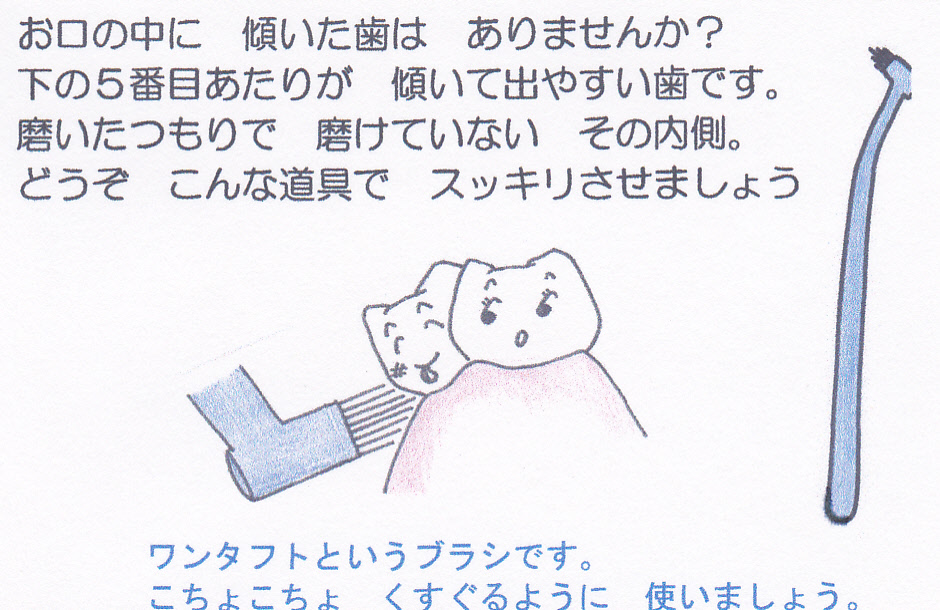 お口の中に　傾いた歯は　ありませんか？
下の５番目あたりが　傾いて出やすい歯です。
磨いたつもりで　磨けていない　その内側。
どうぞ　こんな道具で　スッキリさせましょう
ワンタフトというブラシです。
こちょこちょ　くすぐるように　使いましょう。